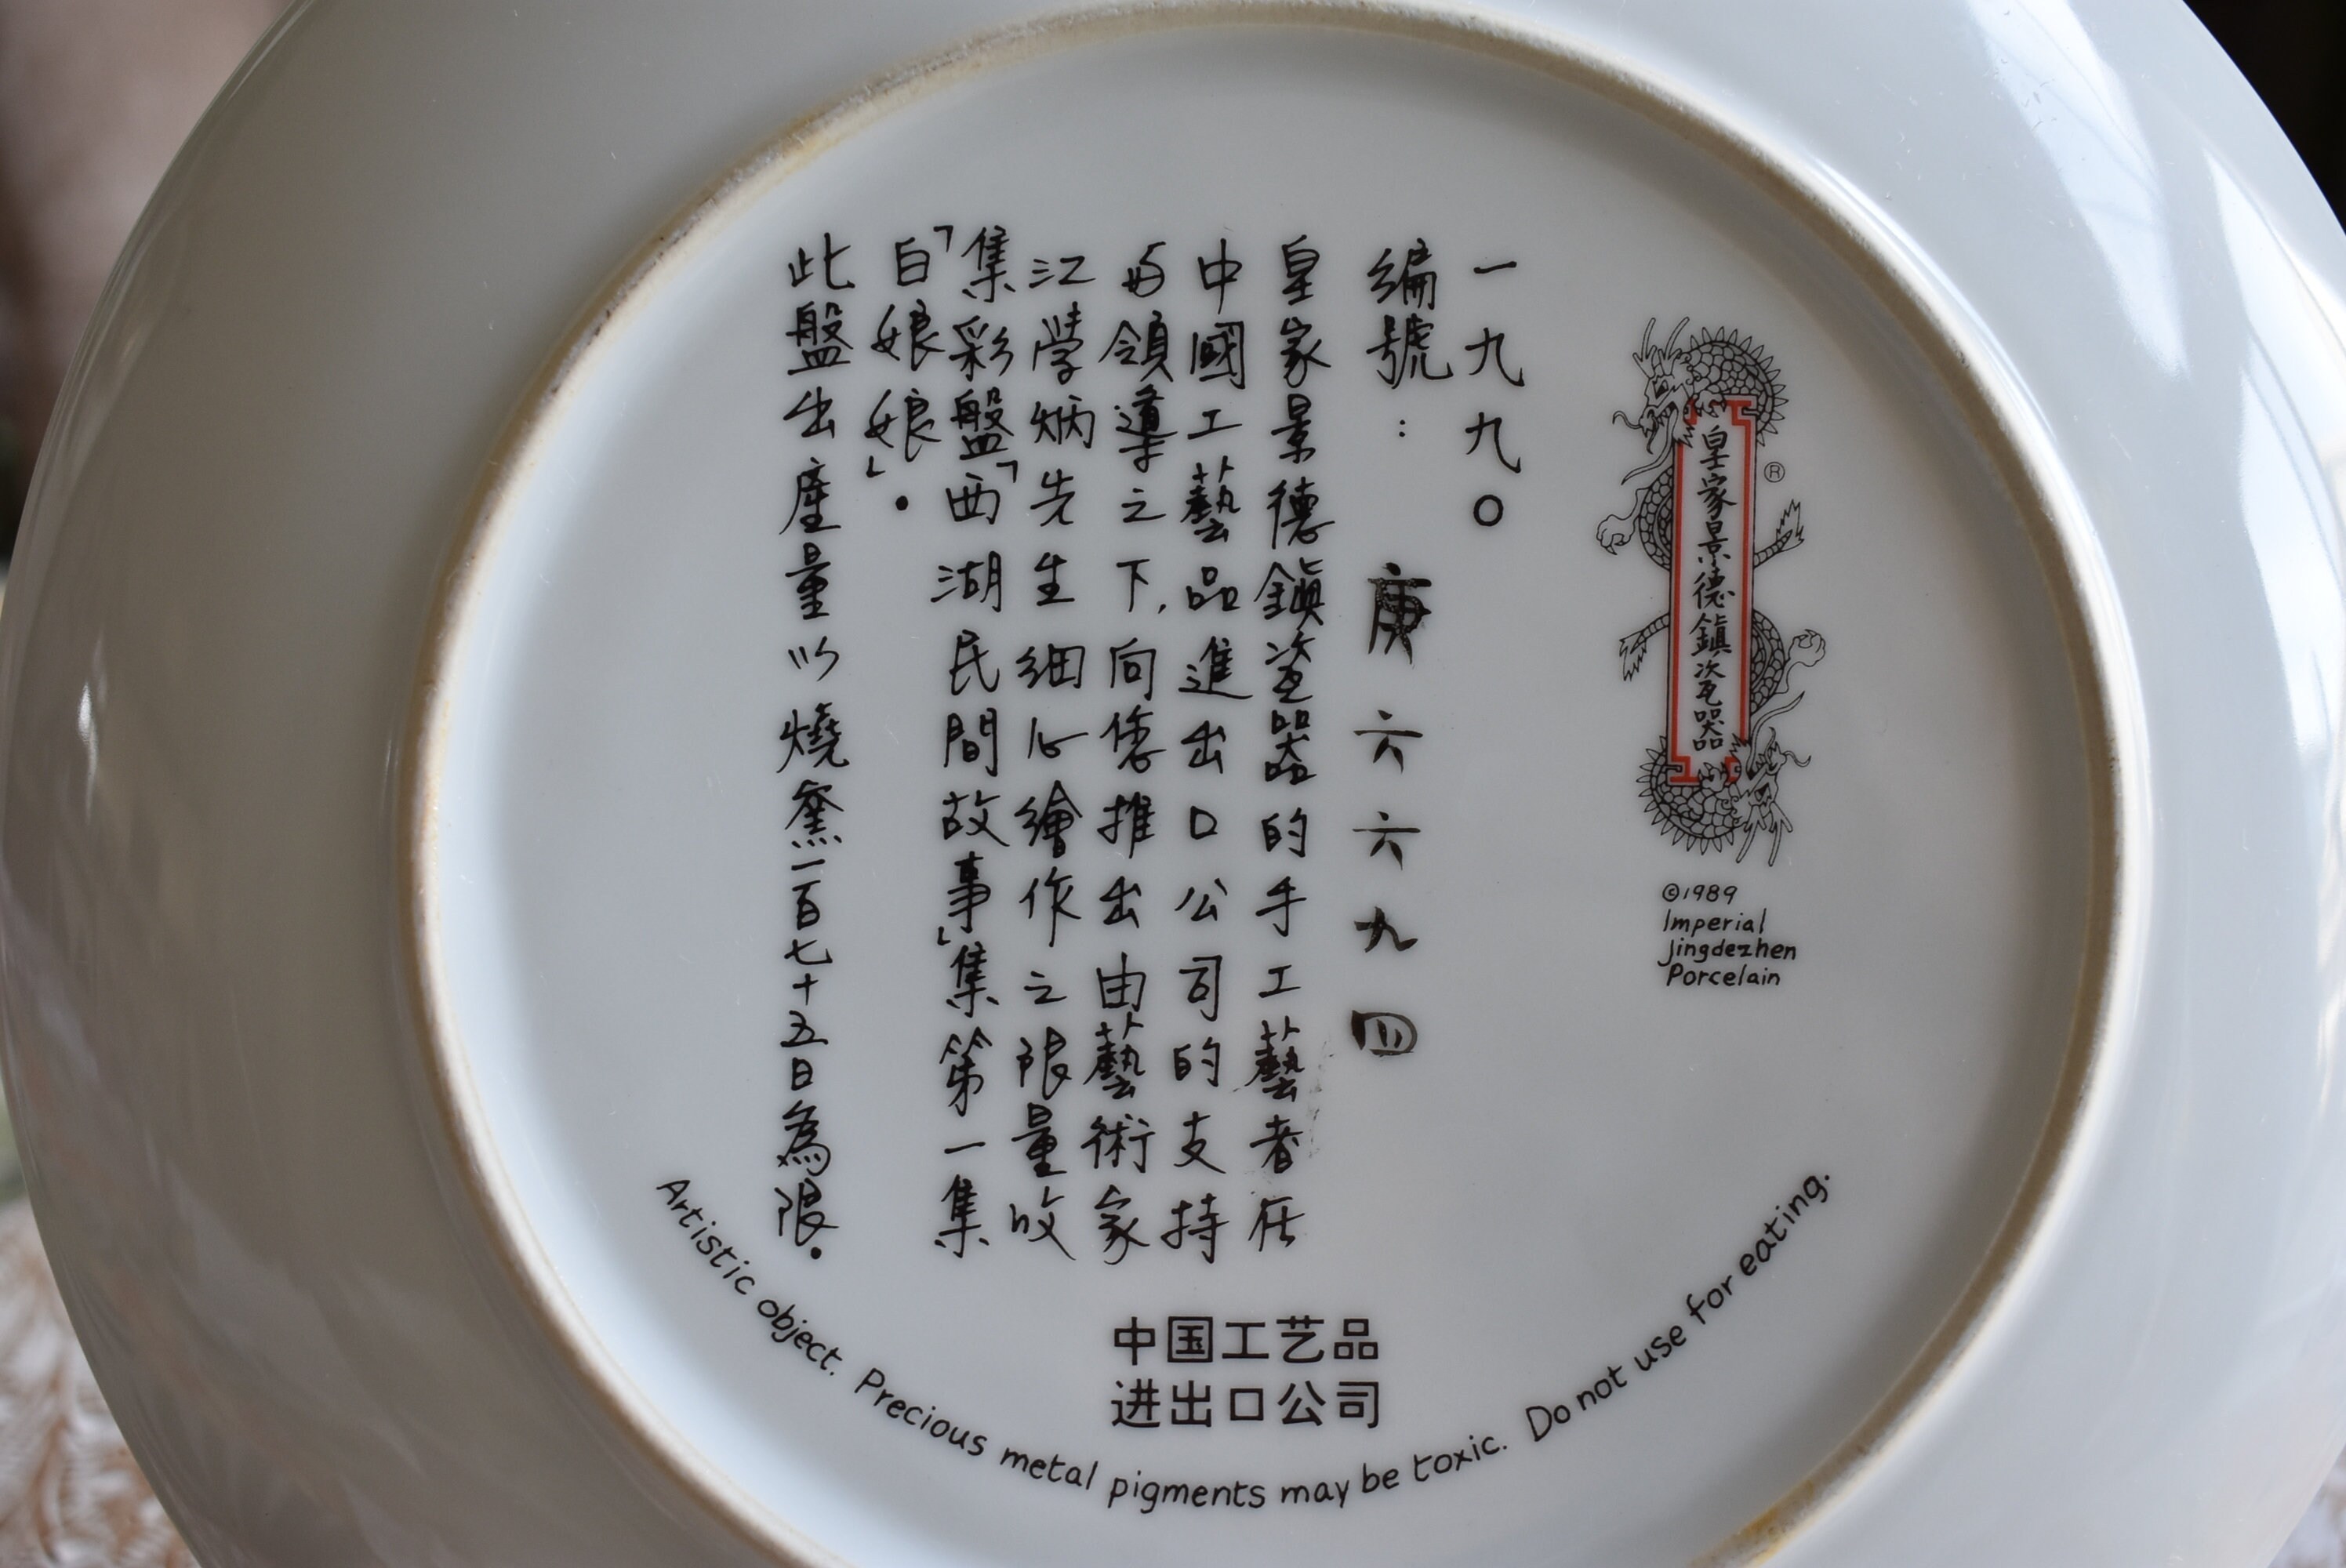 皇家景德鎮瓷器
®
©1989
Imperial
Jingdezhen
Porcelain
一九九〇
編號：庚六六九四
皇家景德鎮瓷器的手工藝者在
中國工藝品進出口公司的支持
與領導之下,向您推出由藝術家
江學炳先生細心繪作之限量收
集彩盤「西湖民間故事」集第一集
「白娘娘」.
此盤出產量以燒窯一百七十五日為限.
中国工艺品
进出口公司
Artistic object. Precious metal pigments may be toxic. Do not use for eating.